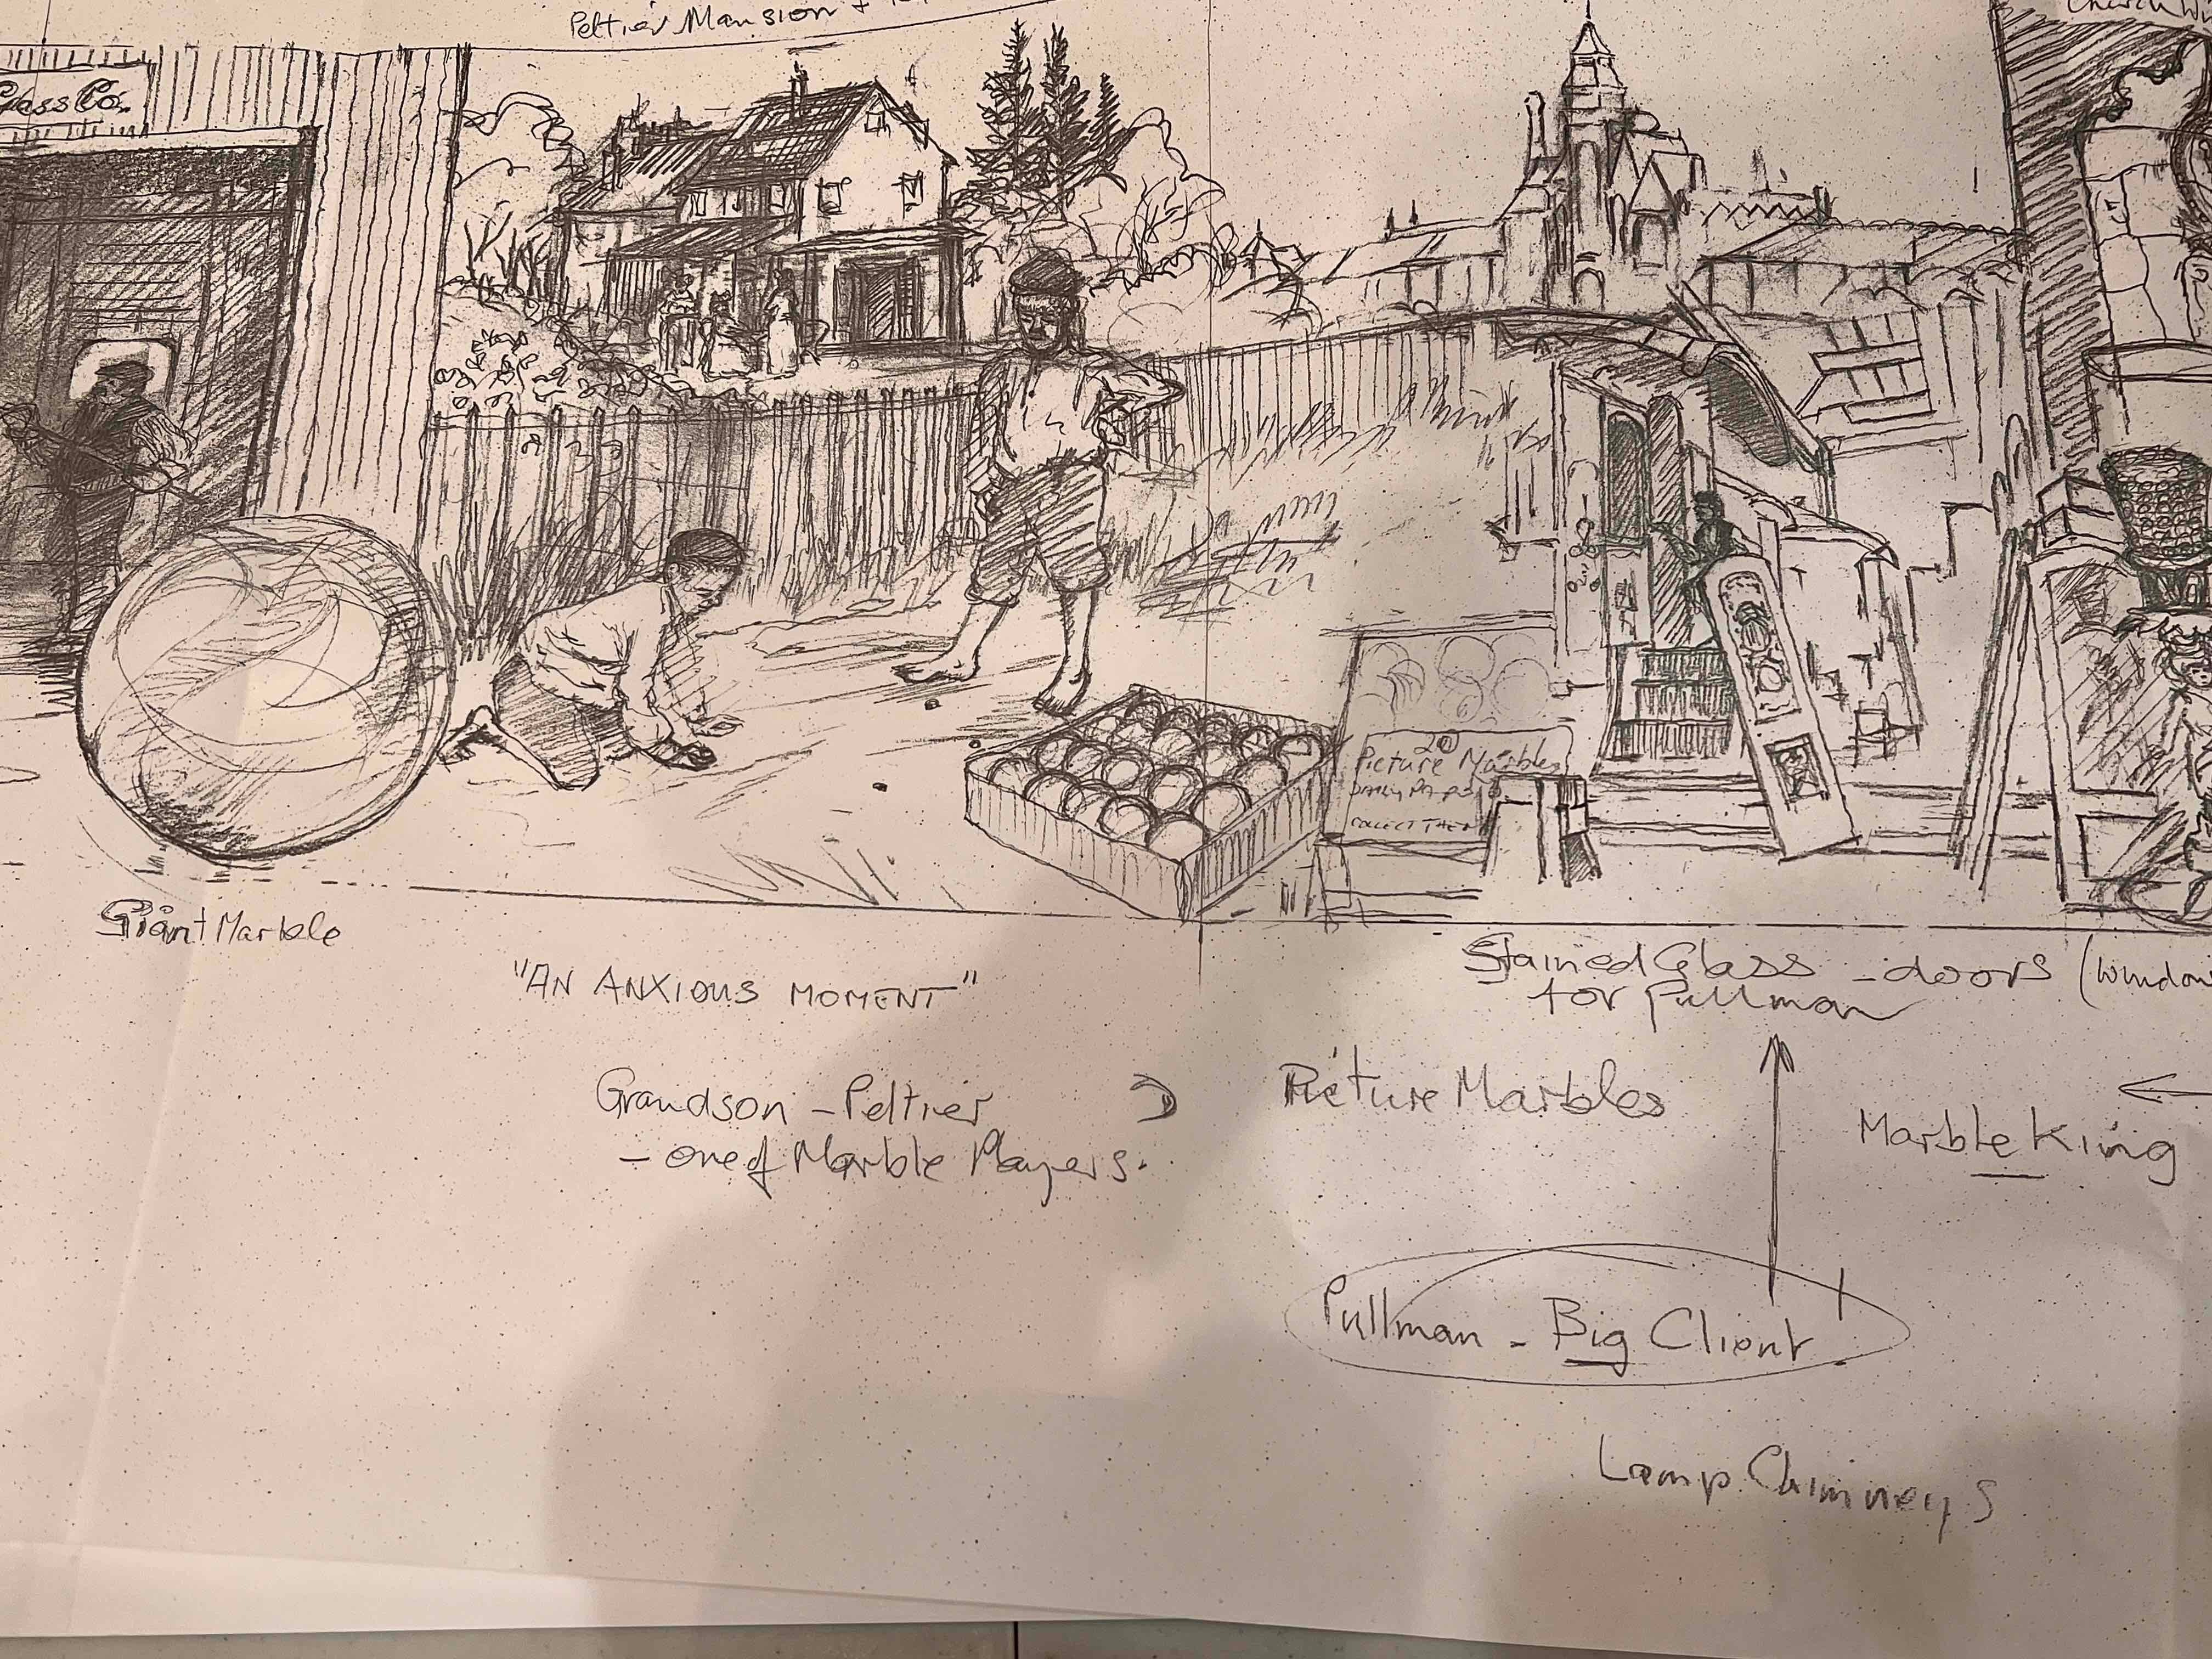 Peltier Mansion +
Church
Glass Co.
20
Picture Marbles
COLLECT THEM
Giant Marble
"AN ANXIOUS MOMENT"
Stained Glass - doors (window
for Pullman
Grandson - Peltier
- one of Marble Players.
Picture Marbles
Marble King
Pullman - Big Client!
Lamp Chimneys